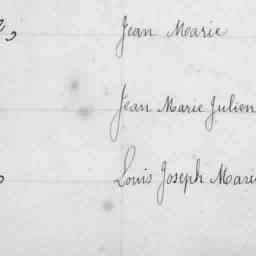 Jean Marie
Jean Marie Julien
Louis Joseph Marie